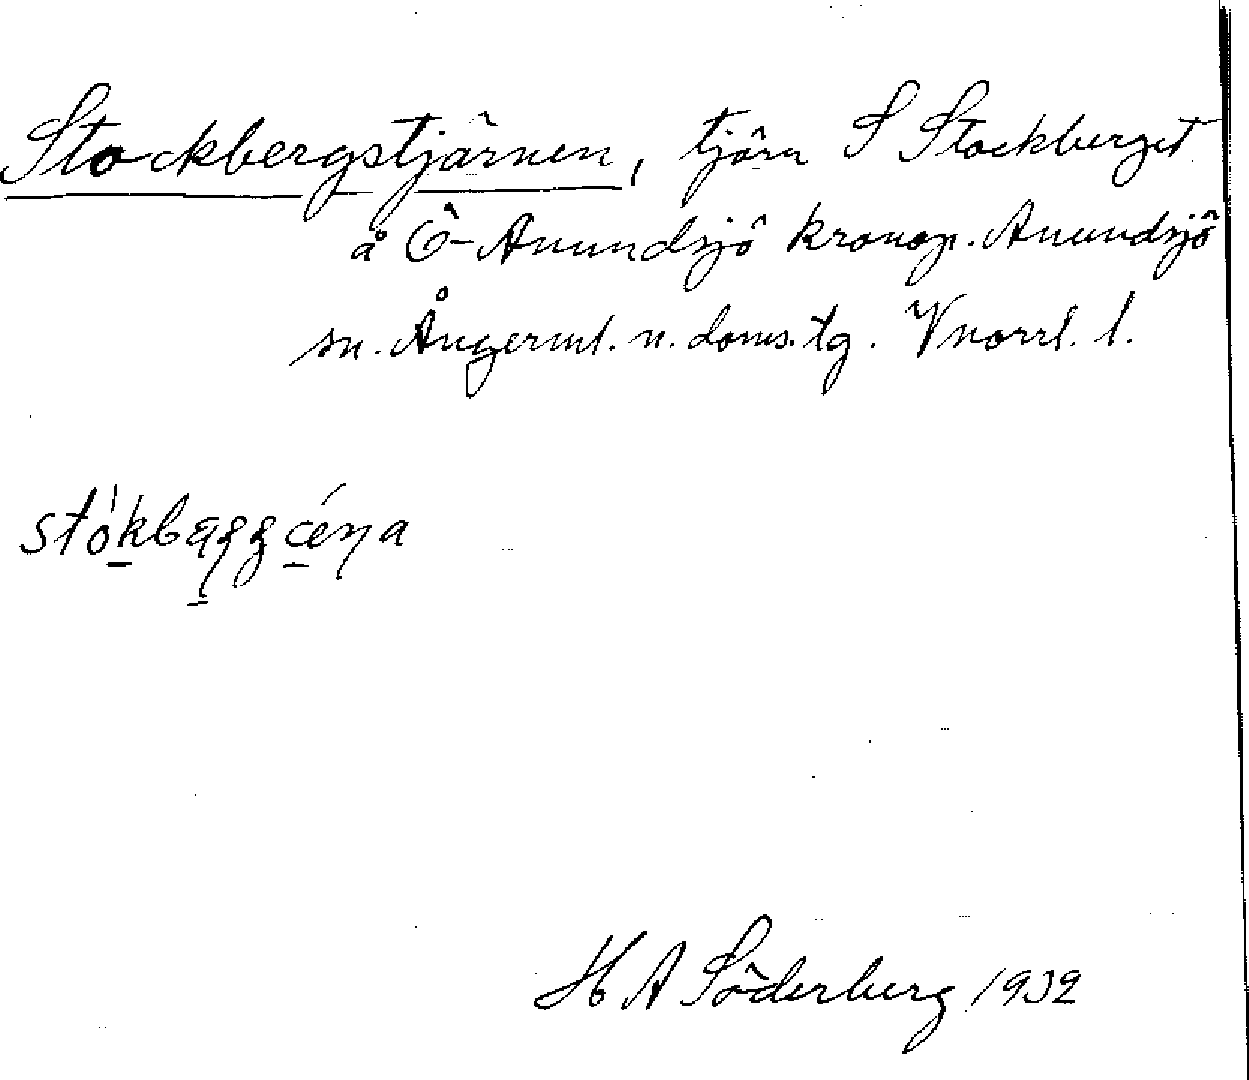 Stockbergstjärnen, tjärn S Stockberget
å Ö-Anundsjö kronop. Anundsjö
sn. Ångerml. n. doms. tg. Vnorrl. l.
H A Söderberg 1932